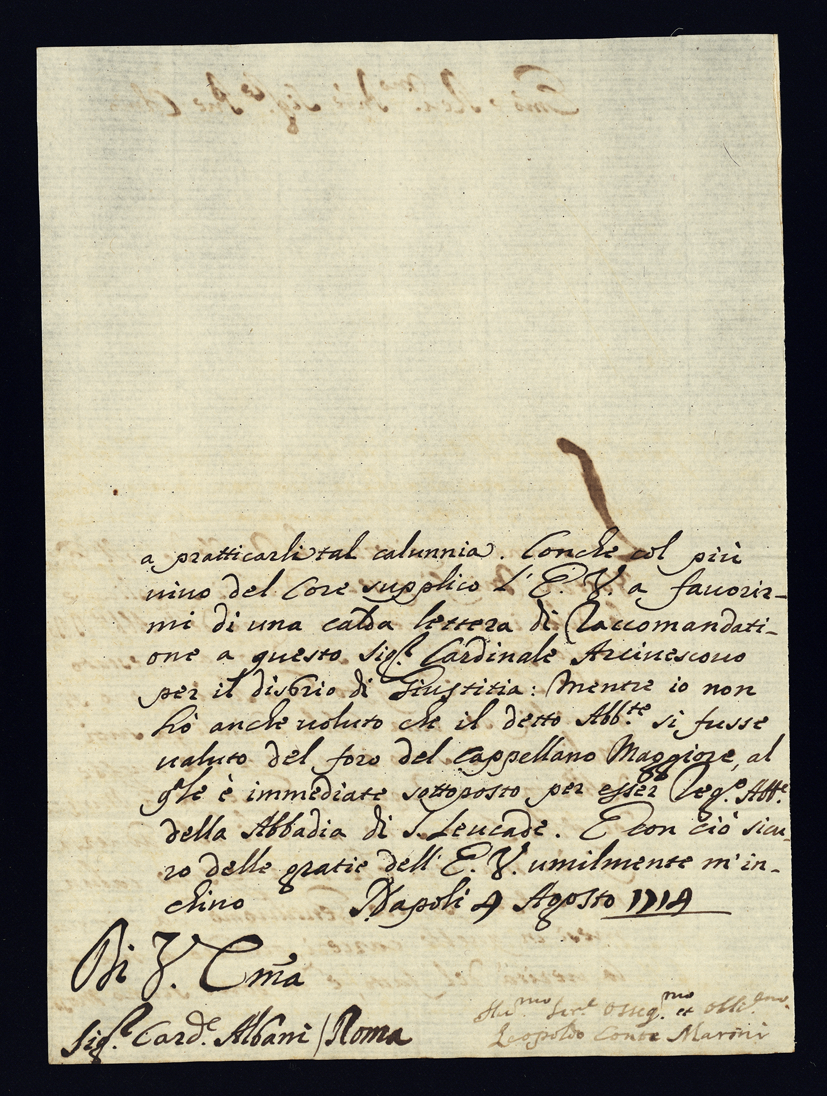 a pratticarli tal calunnia. Conche col più
vivo del Core supplico l'E. V. a favorir-
mi di una calda lettera di Raccomandati-
one a questo Sig.r Cardinale Arcivescovo
per il disbrio di Giustitia: mentre io non
hò anche voluto che il detto Abb.te si fusse
valuto del foro del Cappellano Maggiore, al
q.le è immediate sottoposto per esser Reg.o Abb.e
della Abbadia di S. Leucade. E con ciò sicu-
ro delle gratie dell'E. V. umilmente m'in-
chino Napoli 4 Agosto 1714
Di V. Em̃a
Sig.r Card.e Albani / Roma
Hu.mo Ser.e Osseq.mo et Obli.mo
Leopoldo Conte Marini